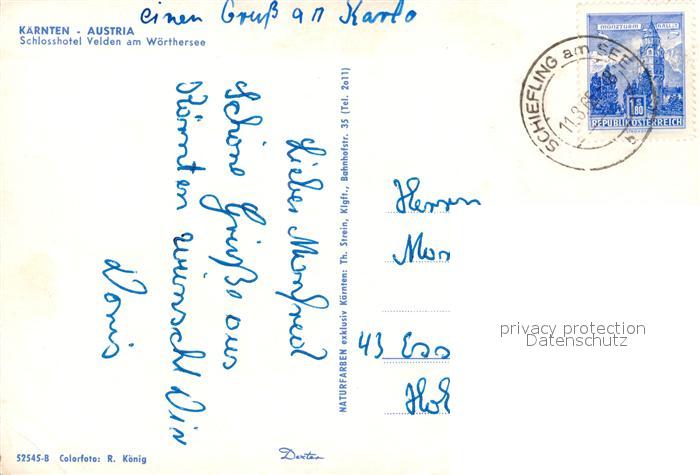 einen Gruß an Karlo
KÄRNTEN - AUSTRIA
Schlosshotel Velden am Wörthersee
Lieber Manfred
Schöne Grüße aus
Kärnten wünscht Dir
Doris
NATURFARBEN exklusiv Kärnten: Th. Strein, Klgft., Bahnhofstr. 35 (Tel. 2011)
MÜNZTURM HALL i. T.
1S80
REPUBLIK ÖSTERREICH
SCHIEFLING am SEE
11.8.65
Herrn
Man
43 Ess
Hol
privacy protection
Datenschutz
52545-B Colorfoto: R. König